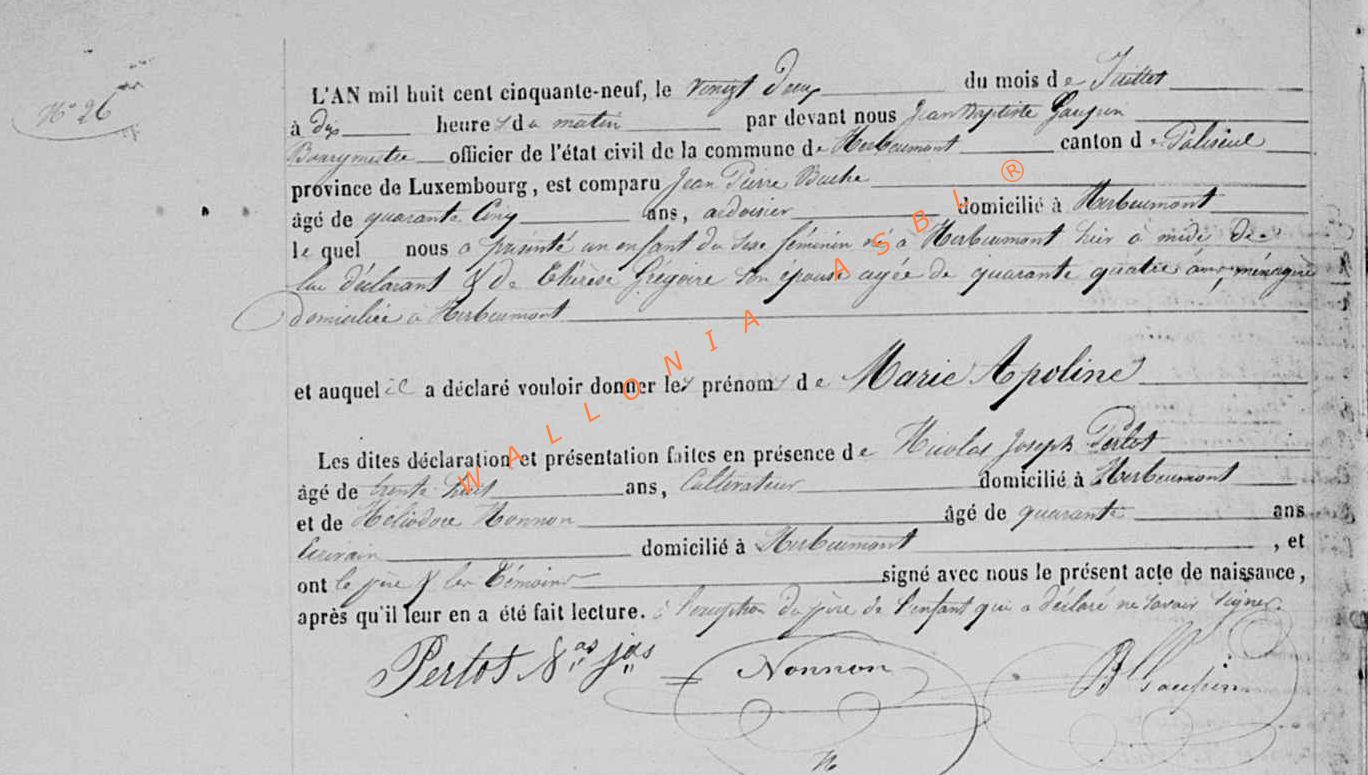 N° 26
L'AN mil huit cent cinquante-neuf, le vingt deux du mois de Juillet
à dix heures du matin par devant nous Jean Baptiste Gaupin
Bourgmestre officier de l'état civil de la commune de Herbeumont canton de Paliseul
province de Luxembourg, est comparu Jean Pierre Buche
âgé de quarante cinq ans, ardoisier domicilié à Herbeumont
le quel nous a présenté un enfant du sexe féminin né à Herbeumont hier à midi de
lui déclarant & de Thérèse Grégoire son épouse agée de quarante quatre ans, ménagère
domiciliée à Herbeumont
et auquel il a déclaré vouloir donner les prénoms de Marie Apoline
Les dites déclaration et présentation faites en présence de Nicolas Joseph Perlot
âgé de trente huit ans, Cultivateur domicilié à Herbeumont
et de Héliodore Nonnon âgé de quarante ans
Ecrivain domicilié à Herbeumont, et
ont le père & les témoins signé avec nous le présent acte de naissance,
après qu'il leur en a été fait lecture. à l'exception du père de l'enfant qui a déclaré ne savoir signer.
Perlot Nas jos Nonnon JB Gaupin
WALLONIA ASBL ®